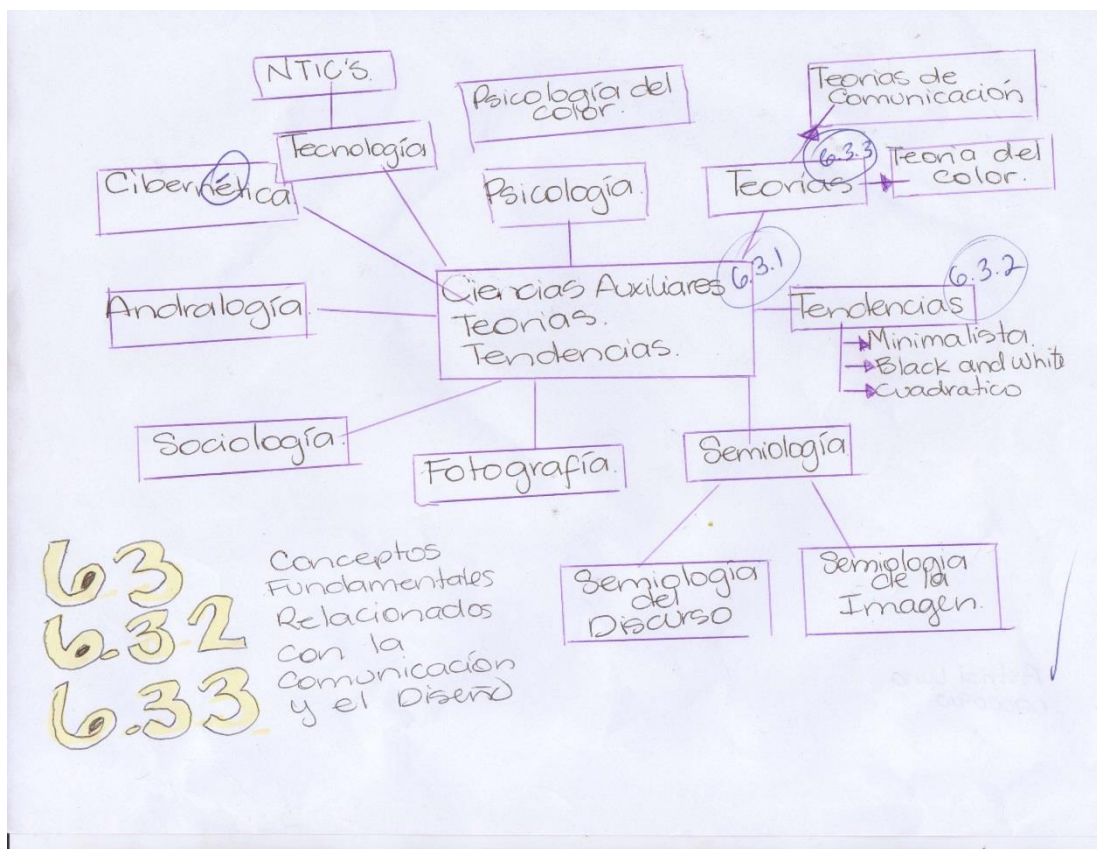 NTIC'S.
Psicología del
color.
Teorias de
Comunicación
Tecnología
6.3.3
Teoria del
color.
Cibernética
Psicología.
Teorías
6.3.1
6.3.2
Ciencias Auxiliares
Teorias.
Tendencias.
Andralogía.
Tendencias
Minimalista.
Black and White
Cuadratico
Sociología.
Fotografía.
Semiología
Semiología
del
Discurso
Semiología
de la
Imagen.
63
6.32
6.33
Conceptos
Fundamentales
Relacionados
con la
Comunicación
y el Diseño